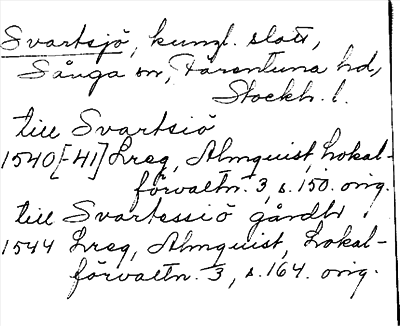 Svartsjö, kungl. slott,
Sånga sn, Färentuna hd,
Stockh. l.
till Svartsiö
1540[-41] Lreg, Almquist, Lokal-
förvaltn. 3, s. 150. orig.
till Svartessiö gårdh
1544 Lreg, Almquist, Lokal-
förvaltn. 3, s. 164. orig.